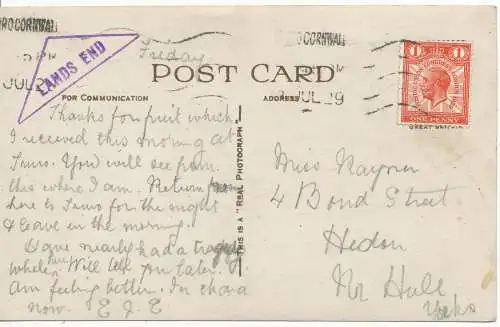 TRURO CORNWALL
5 PM
JUL 29
LANDS END
Friday
POST CARD
FOR COMMUNICATION
ADDRESS
TRURO CORNWALL
PM
JUL 29
1 1
ONE PENNY
GREAT BRITAIN
Thanks for fruit which
I received this morning at
Truro. You will see from
this where I am. Return from
here to Truro for the night
& leave in the morning.
have nearly had a tragedy
Will tell you later.
am feeling better. In chara
now. E J E
THIS IS A "REAL PHOTOGRAPH"
Miss Raynor
4 Bond Street
Hedon
Nr Hull
Yorks